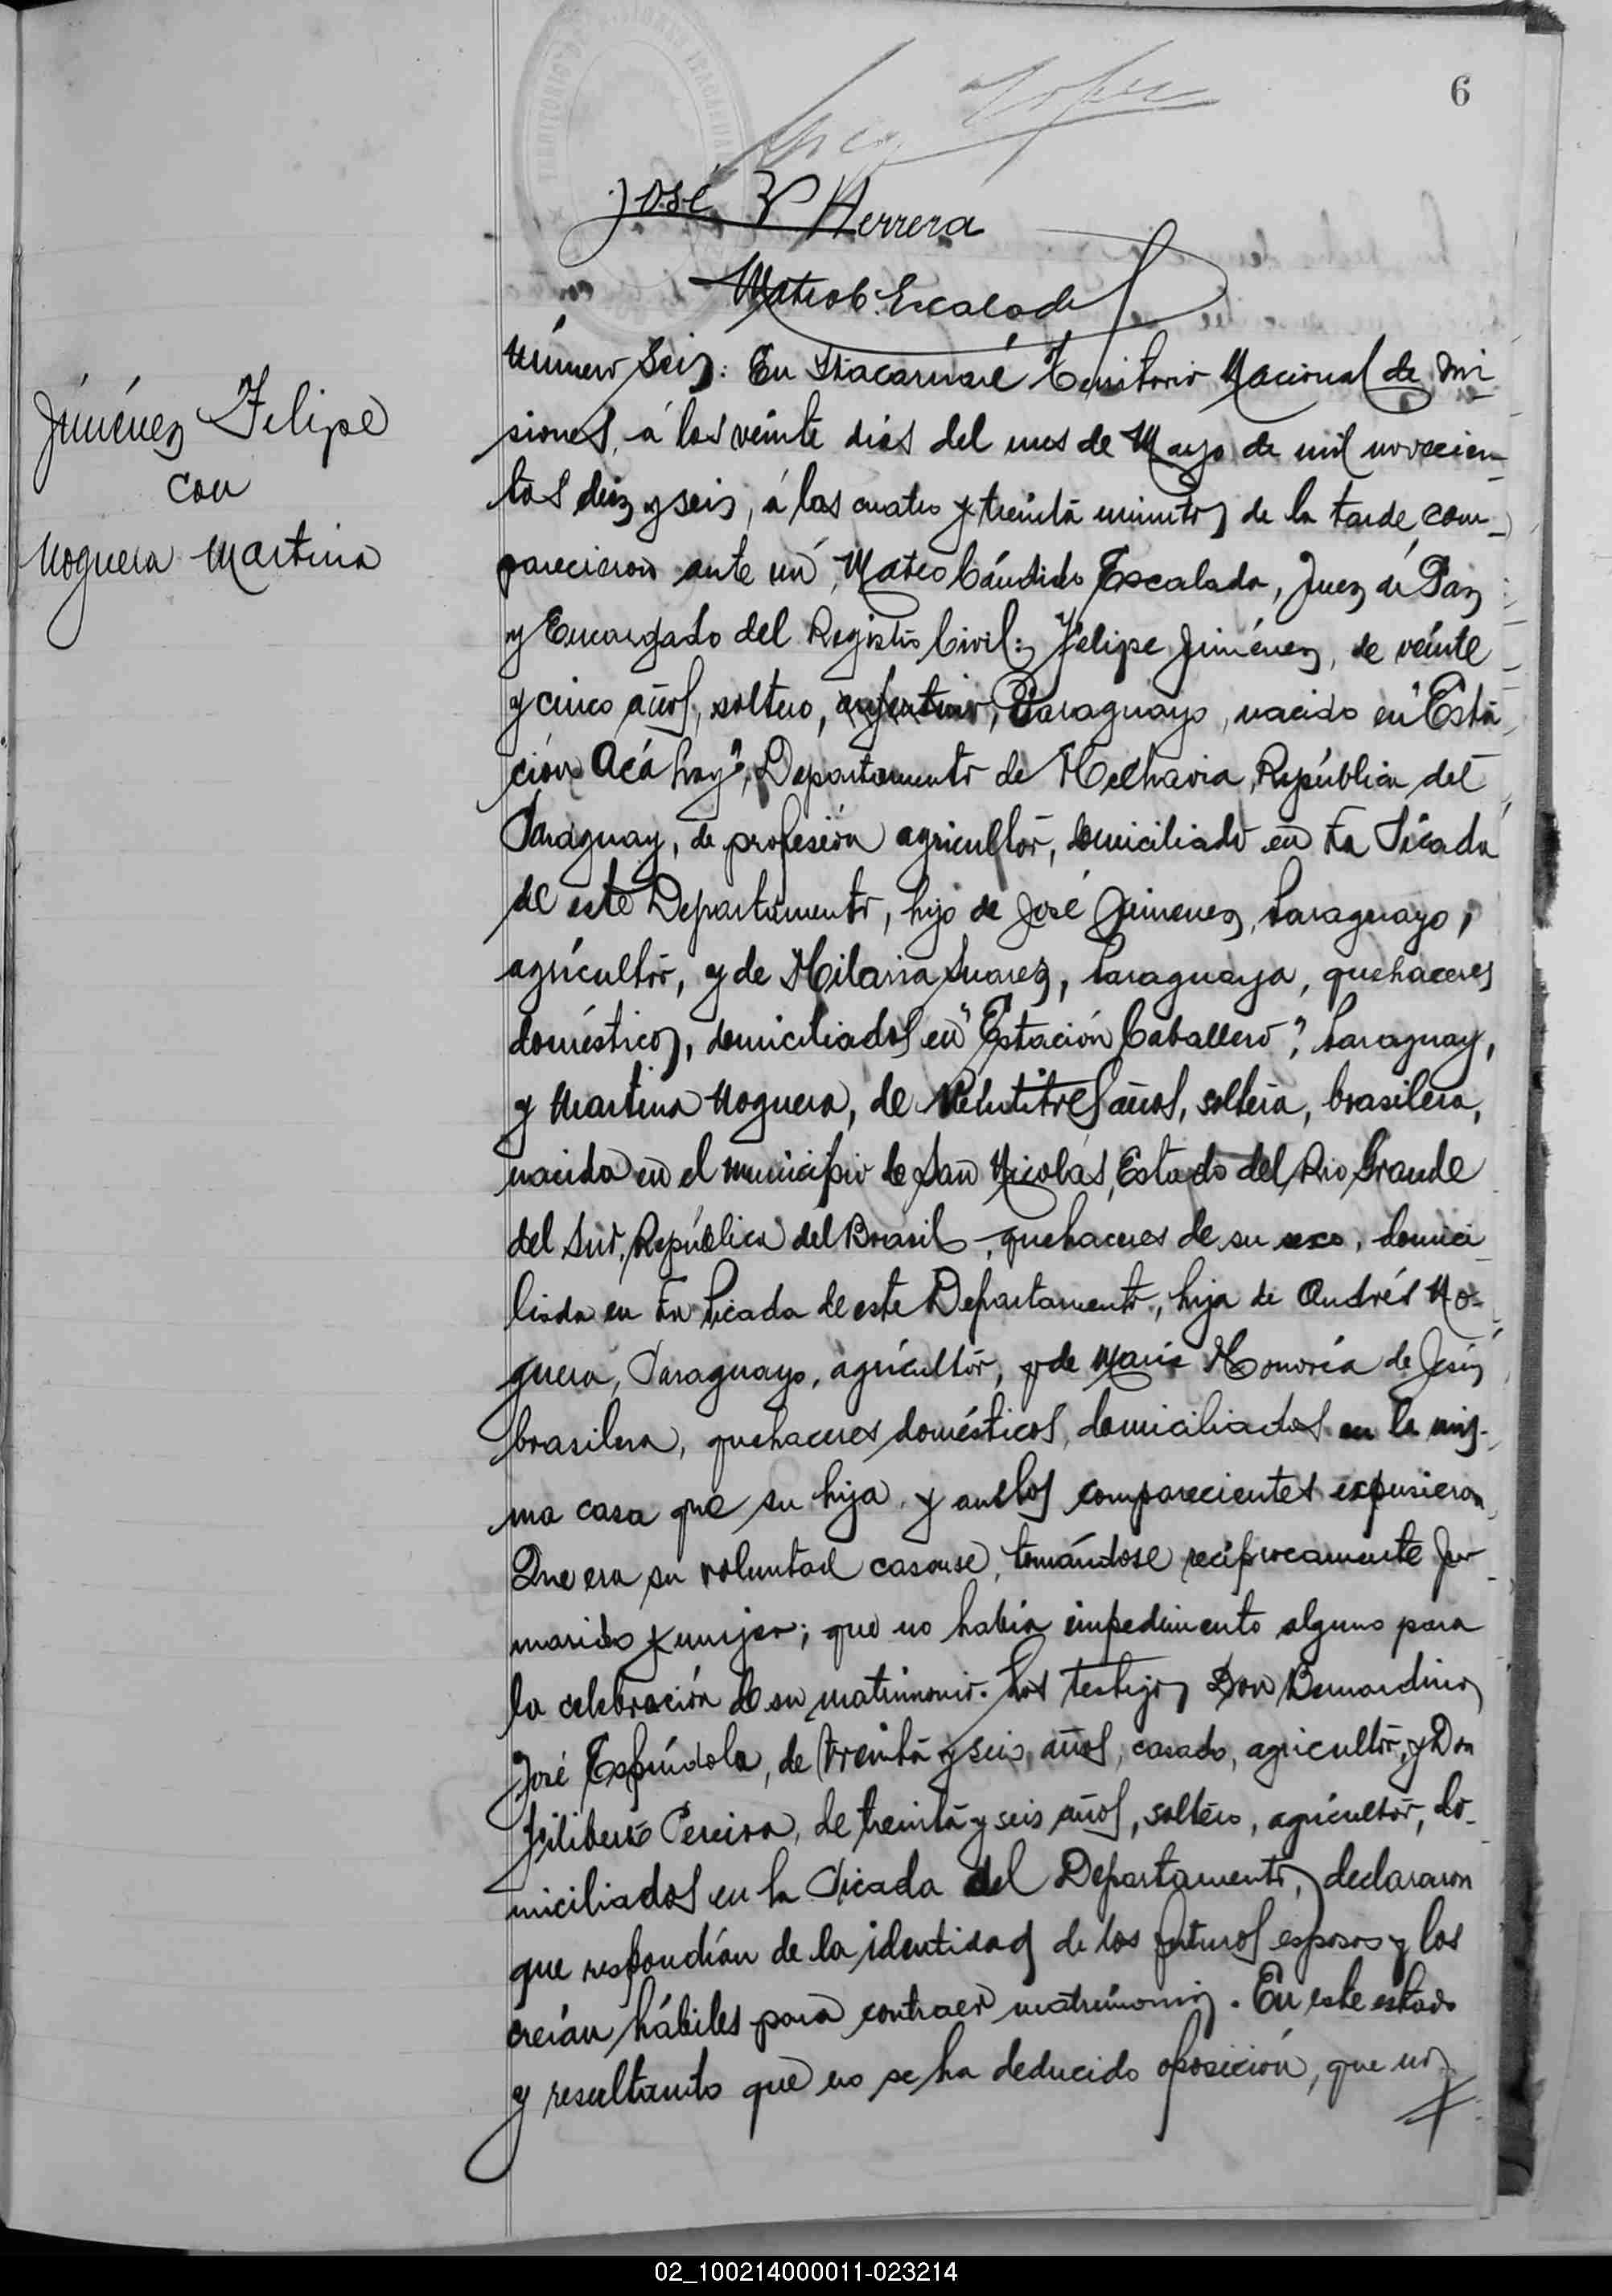 6
José P Herrera
Mateo C. Escalada
Jiménez Felipe
con
Noguera Martina
Número Seis: En Itacaruaré Territorio Nacional de Mi-
siones, á los veinte dias del mes de Mayo de mil novecien-
tos diez y seis, á las cuatro y treinta minutos de la tarde, com-
parecieron ante mí, Mateo Cándido Escalada, Juez de Paz
y Encargado del Registro Civil: Felipe Jiménez, de veinte
y cinco años, soltero, argentino, Paraguayo, nacido en "Esta
ción Acá hay", Departamento de República del
Paraguay, de profesión agricultor, domiciliado en La Picada
de este Departamento, hijo de José Jimenez, Paraguayo,
agricultor, y de Hilaria Suarez, Paraguaya, quehaceres
domésticos, domiciliados en "Estación Caballero", Paraguay,
y Martina Noguera, de Veintitres años, soltera, brasilera,
nacida en el municipio de San Nicolás, Estado del Rio Grande
del Sur, República del Brasil, quehaceres de su sexo, domici
liada en La Picada de este Departamento, hija de Andrés No-
guera, Paraguayo, agricultor, y de María Honoria de Jesús
brasilera, quehaceres domésticos, domiciliados en la mis-
ma casa que su hija, y ambos comparecientes expusieron
Que era su voluntad casarse, tomándose recíprocamente por
marido y mujer; que no había impedimento alguno para
la celebración de su matrimonio. Los testigos Don Bernardino
José Espíndola, de treinta y seis años, casado, agricultor, y Don
Filiberto Pereira, de treinta y seis años, soltero, agricultor, do-
miciliados en La Picada del Departamento, declararon
que respondían de la identidad de los futuros esposos y los
creían hábiles para contraer matrimonio. En este estado
y resultando que no se ha deducido oposición, que no
02_100214000011-023214